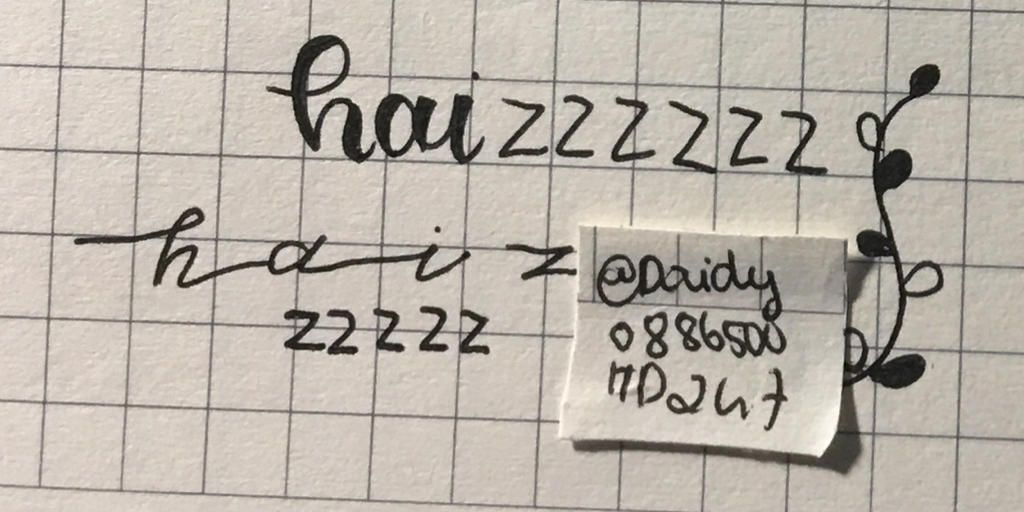 haizzzzzz
hai z
zzzzz
@Daidy
0886500
MD2417